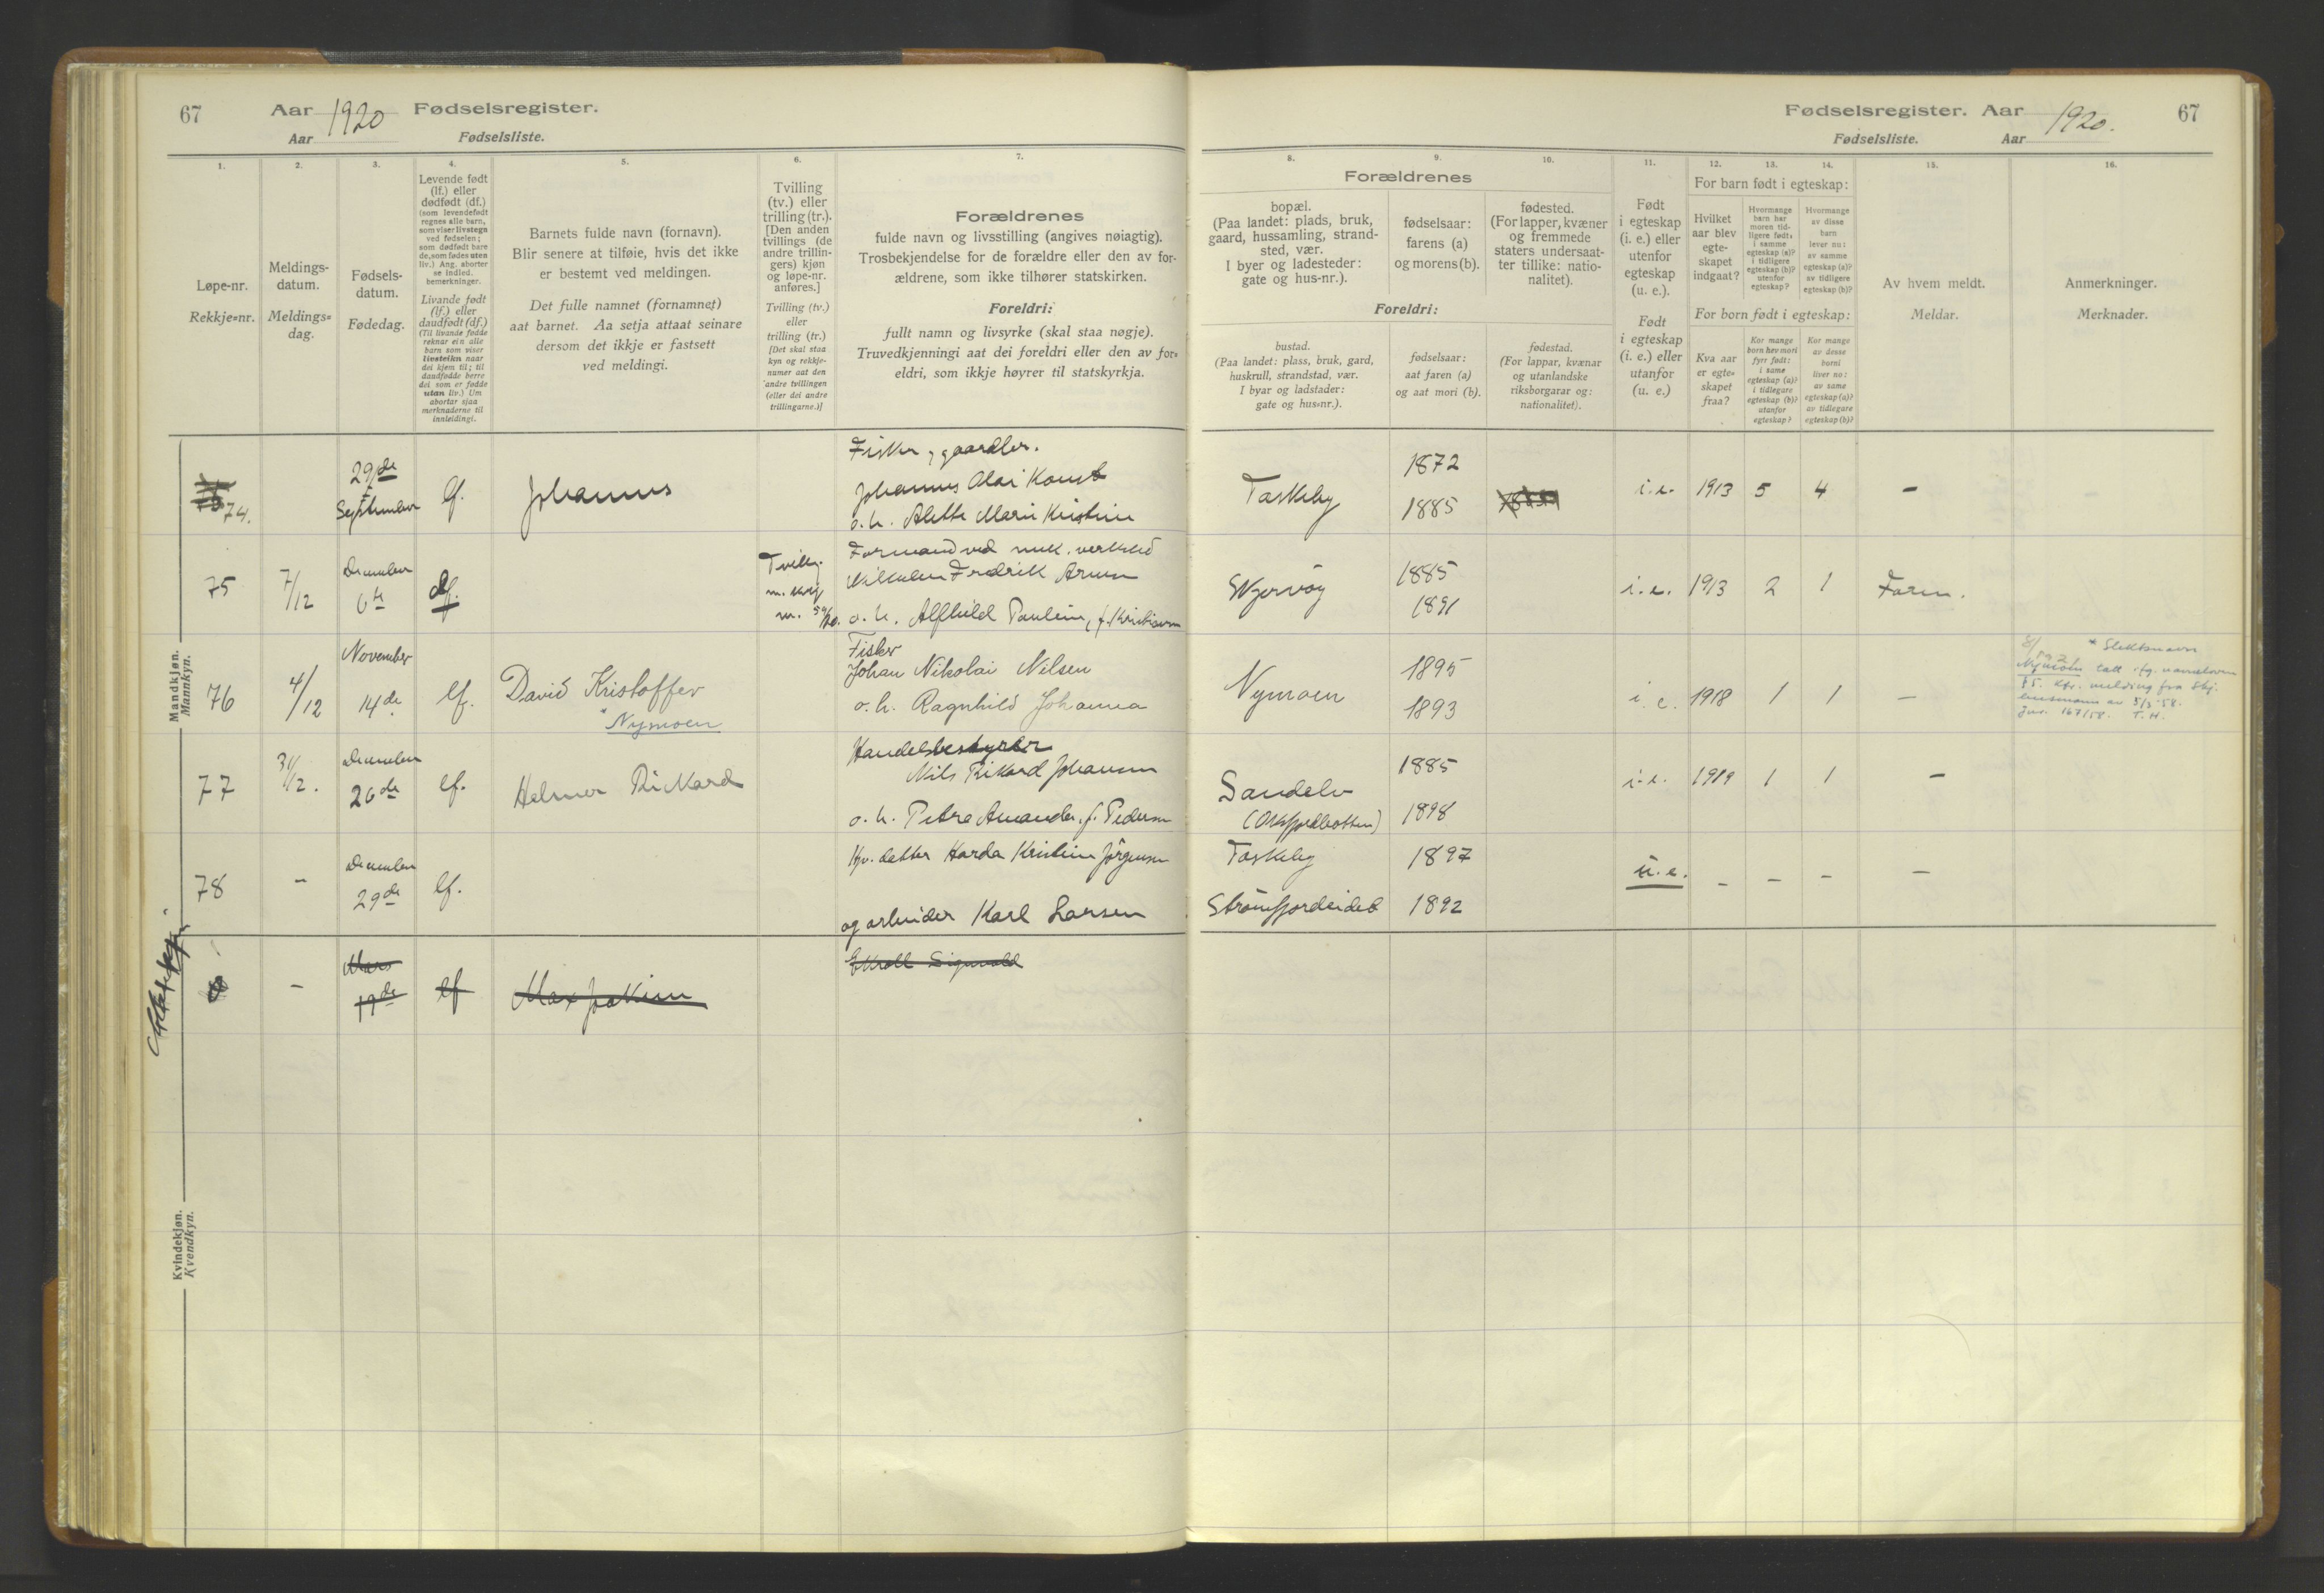 67
Aar 1920 Fødselsregister.
Aar Fødselsliste.
1.
Løpe-nr.
Rekkje=nr.
2.
Meldings-
datum.
Meldings=
dag.
3.
Fødsels-
datum.
Fødedag.
4.
Levende født
(lf.) eller
dødfødt (df.)
(som levendefødt
regnes alle barn,
som viser livstegn
ved fødselen;
som dødfødt bare
de, som fødes uten
liv.) Ang. aborter
se indled.
bemerkninger.
Livande født
(lf.) eller
daudfødt (df.)
(Til livande fødde
reknar ein alle
barn som viser
livsteikn naar
dei kjem til; til
daudfødde berre
dei som er fødde
utan liv.) Um
abortar sjaa
merknaderne til
innleidingi.
5.
Barnets fulde navn (fornavn).
Blir senere at tilføie, hvis det ikke
er bestemt ved meldingen.
Det fulle namnet (fornamnet)
aat barnet. Aa setja attaat seinare
dersom det ikkje er fastsett
ved meldingi.
6.
Tvilling
(tv.) eller
trilling (tr.).
[Den anden
tvillings (de
andre trillin-
gers) kjøn
og løpe-nr.
anføres.]
Tvilling (tv.)
eller
trilling (tr.)
[Det skal staa
kyn og rekkje-
numer aat den
andre tvillingen
(eller dei andre
trillingarne.)]
7.
Forældrenes
fulde navn og livsstilling (angives nøiagtig).
Trosbekjendelse for de forældre eller den av for-
ældrene, som ikke tilhører statskirken.
Foreldri:
fullt namn og livsyrke (skal staa nøgje).
Truvedkjenningi aat dei foreldri eller den av for=
eldri, som ikkje høyrer til statskyrkja.
Fødselsregister. Aar 1920.
67
Fødselsliste. Aar
8.
Forældrenes
bopæl.
(Paa landet: plads, bruk,
gaard, hussamling, strand-
sted, vær.
I byer og ladesteder:
gate og hus-nr.).
Foreldri:
bustad.
(Paa landet: plass, bruk, gard,
huskrull, strandstad, vær.
I byar og ladstader:
gate og hus=nr.).
9.
fødselsaar:
farens (a)
og morens (b).
fødselsaar:
aat faren (a)
og aat mori (b).
10.
fødested.
(For lapper, kvæner
og fremmede
staters undersaat-
ter tillike: natio-
nalitet).
fødestad.
(For lappar, kvænar
og utanlandske
riksborgarar og:
nationalitet).
11.
Født
i egteskap
(i. e.) eller
utenfor
egteskap
(u. e.).
Født
i egteskap
(i. e.) eller
utanfor
(u. e.)
12. 13. 14.
For barn født i egteskap:
Hvilket
aar blev
egte-
skapet
indgaat?
Hvormange
barn har
moren tid-
ligere født:
i samme
egteskap (a)?
i tidligere
egteskap (b)?
utenfor
egteskap?
Hvormange
av disse
barn
lever nu:
av samme
egteskap (a)?
av tidligere
egteskap (b)?
For born født i egteskap:
Kva aar
er egte=
skapet
fraa?
Kor mange
born hev mori
fyrr født:
i same
egteskap (a)?
i tidlegare
egteskap (b)?
utanfor
egteskap?
Kor mange
av desse
borni
liver no:
av same
egteskap (a)?
av tidlegare
egteskap (b)?
15.
Av hvem meldt.
Meldar.
16.
Anmerkninger.
Merknader.
Mandkjøn.
Mannkyn.
74. 29de September lf. Johannes
Fisker, gaardbr.
Johannes Olai
o. h. Alette Marie Kristine
Taskeby 1872 1885 i.e. 1913 5 4 -
75 7/12 December 6te df.
Tvill.
Formand ved mek. verksted
Fredrik
o. h. Alfhild Pauline, f. Kristiansen
Skjervøy 1885 1891 i.e. 1913 2 1 Faren.
76 4/12 November 14de lf. David Kristoffer
* Nymoen
Fisker
Johan Nikolai Nilsen
o. h. Ragnhild Johanna
Nymoen 1895 1893 i. e. 1918 1 1 -
* Slektsnavn
Nymoen tatt ifg. navneloven
melding fra Skj.
lensmann av 5/3 58.
Jnr. 167/58. T. H.
77 31/12. December 26de lf. Helmer Rikkard
Handelsbestyrer
Nils Rikard Johansen
o. h. Petra Amanda, f. Pedersen
Sandelv
(Oksfjordbotten)
1885 1898 i.e. 1919 1 1 -
78 - December 29de lf.
Hjv. datter Harda Kristine Jørgensen
og arbeider Karl Larsen
Taskeby 1897
Strømfjordeidet 1892
u.e. - - - -
- Mars 19de lf Max Joakim
Sigurvald
Kvindekjøn.
Kvendkyn.